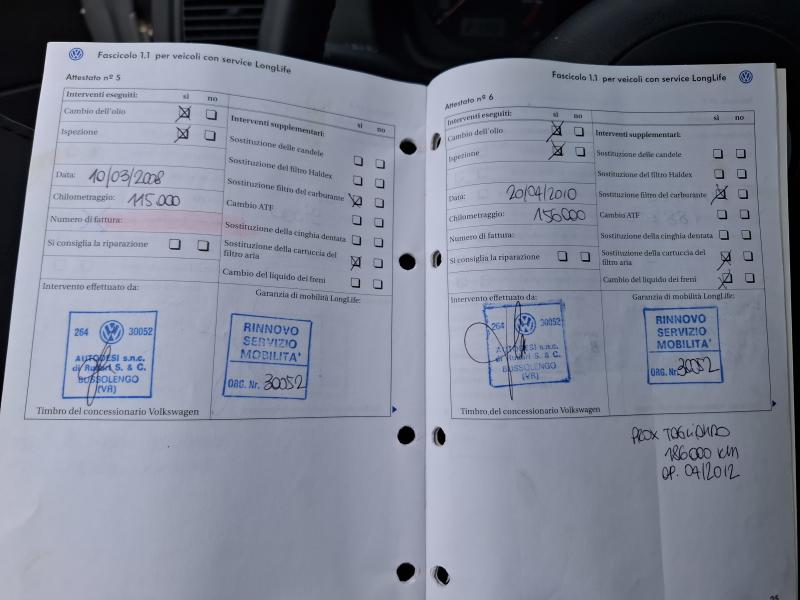 Fascicolo 1.1 per veicoli con service LongLife
Attestato nº 5
Interventi eseguiti: sì no
Cambio dell'olio
Ispezione
Data: 10/03/2008
Chilometraggio: 115.000
Numero di fattura:
Si consiglia la riparazione
Interventi supplementari: sì no
Sostituzione delle candele
Sostituzione del filtro Haldex
Sostituzione filtro del carburante
Cambio ATF
Sostituzione della cinghia dentata
Sostituzione della cartuccia del
filtro aria
Cambio del liquido dei freni
Intervento effettuato da:
264 30052
AUTODESI s.n.c.
S. & C.
BUSSOLENGO
(VR)
Timbro del concessionario Volkswagen
Garanzia di mobilità LongLife:
RINNOVO
SERVIZIO
MOBILITA'
ORG. Nr. 30052
Fascicolo 1.1 per veicoli con service LongLife
Attestato nº 6
Interventi eseguiti: sì no
Cambio dell'olio
Ispezione
Data: 20/04/2010
Chilometraggio: 156000
Numero di fattura:
Si consiglia la riparazione
Interventi supplementari: sì no
Sostituzione delle candele
Sostituzione del filtro Haldex
Sostituzione filtro del carburante
Cambio ATF
Sostituzione della cinghia dentata
Sostituzione della cartuccia del
filtro aria
Cambio del liquido dei freni
Intervento effettuato da:
264 30052
AUTODESI s.n.c.
S. & C.
BUSSOLENGO
(VR)
Timbro del concessionario Volkswagen
Garanzia di mobilità LongLife:
RINNOVO
SERVIZIO
MOBILITA'
ORG. Nr. 30052
PROX TAGLIANDO
186000 KM
OP. 04/2012